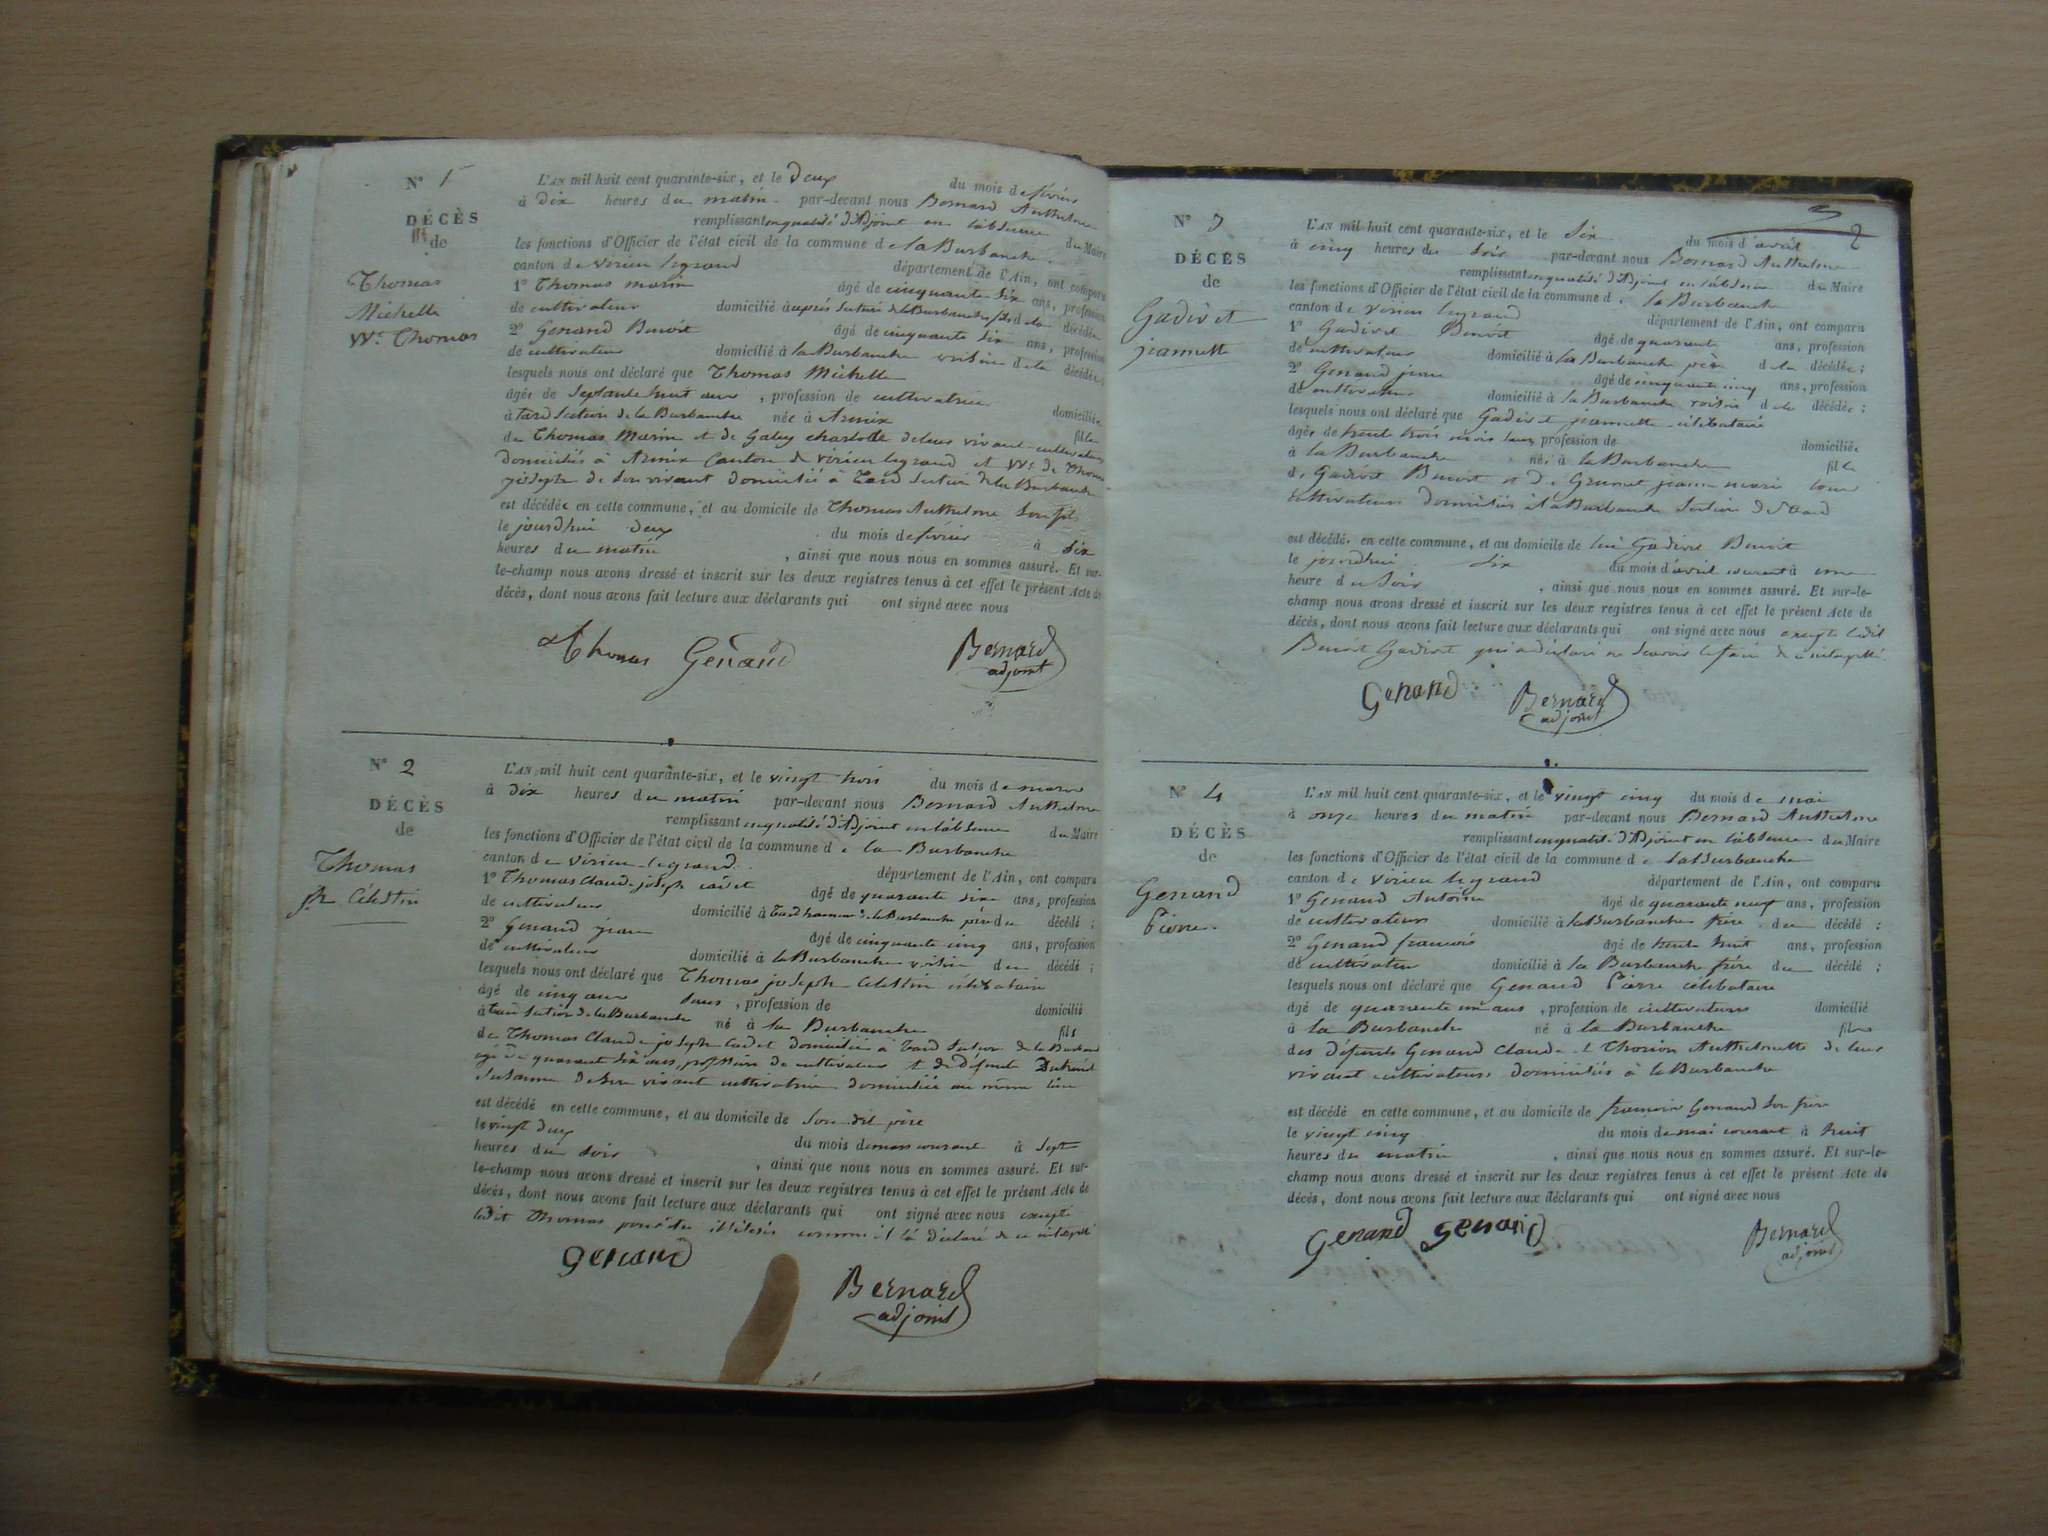 N° 1
DÉCÈS
de
Thomas
Michelle
Ve Thomas
L'AN mil huit cent quarante-six, et le deux du mois de février
à dix heures du matin par-devant nous Bernard Anthelme
remplissant en qualité d'Adjoint en l'absence du Maire
les fonctions d'Officier de l'état civil de la commune de la Burbanche
canton de virieu legrand département de l'Ain, ont comparu
1° Thomas marin âgé de cinquante six ans, profession
de cultivateur domicilié à de la Burbanche de la décédée
2° Genand Benoit âgé de cinquante six ans, profession
de cultivateur domicilié à la Burbanche voisin de la décédée;
lesquels nous ont déclaré que Thomas Michelle
âgée de Septante huit ans, profession de cultivatrice domiciliée
à tard Section de la Burbanche née à Armix fille
de Thomas Marin et de Galley charlotte de leur vivant cultivateurs
domiciliés à Armix Canton de virieu legrand et Ve de Thomas
joseph de Son vivant domicilié à Tard Section de la Burbanche
est décédée en cette commune, et au domicile de Thomas Anthelme Son fils
le jourdhui deux du mois de février à Six
heures du matin, ainsi que nous nous en sommes assuré. Et sur-
le-champ nous avons dressé et inscrit sur les deux registres tenus à cet effet le présent Acte de
décès, dont nous avons fait lecture aux déclarants qui ont signé avec nous
Thomas Genand Bernard
adjoint
N° 2
DÉCÈS
de
Thomas
jh Célestin
L'AN mil huit cent quarante-six, et le vingt trois du mois de mars
à dix heures du matin par-devant nous Bernard Anthelme
remplissant en qualité d'Adjoint en l'absence du Maire
les fonctions d'Officier de l'état civil de la commune de la Burbanche
canton de virieu legrand département de l'Ain, ont comparu
1° Thomas Claude joseph cadet âgé de quarante six ans, profession
de cultivateur domicilié à tard de la Burbanche père du décédé;
2° Genand jean âgé de cinquante cinq ans, profession
de cultivateur domicilié à la Burbanche voisin du décédé;
lesquels nous ont déclaré que Thomas joseph Célestin célibataire
âgé de cinq ans, profession de domicilié
à tard Section de la Burbanche né à la Burbanche fils
de Thomas Claude joseph Cadet domicilié à Tard Section de la Burbanche
agé de quarante Six ans, profession de cultivateur et de défunte
Susanne de Son vivant cultivatrice domiciliée au même lieu
est décédé en cette commune, et au domicile de Son dit père
le vingt deux du mois de mars courant à Sept
heures du Soir, ainsi que nous nous en sommes assuré. Et sur-
le-champ nous avons dressé et inscrit sur les deux registres tenus à cet effet le présent Acte de
décès, dont nous avons fait lecture aux déclarants qui ont signé avec nous excepté
ledit Thomas pour être illitéré comme il l'a déclaré de ce interpellé
Genand
Bernard
adjoint
2
N° 3
DÉCÈS
de
Gadivet
jeannette
L'AN mil huit cent quarante-six, et le Six du mois d'avril
à cinq heures du Soir par-devant nous Bernard Anthelme
remplissant en qualité d'Adjoint en l'absence du Maire
les fonctions d'Officier de l'état civil de la commune de la Burbanche
canton de virieu legrand département de l'Ain, ont comparu
1° Gadivet Benoit âgé de quarante ans, profession
de cultivateur domicilié à la Burbanche père de la décédée;
2° Genand jean âgé de cinquante cinq ans, profession
de cultivateur domicilié à la Burbanche voisin de la décédée;
lesquels nous ont déclaré que Gadivet jeannette célibataire
âgée de trente trois mois, profession de domiciliée
à la Burbanche née à la Burbanche fille
de Gadivet Benoit et de jeanne marie tous
cultivateurs domiciliés à la Burbanche Section de Tard
est décédée en cette commune, et au domicile de Gadivet Benoit
le jourdhui Six du mois d'avril courant à une
heure du Soir, ainsi que nous nous en sommes assuré. Et sur-le-
champ nous avons dressé et inscrit sur les deux registres tenus à cet effet le présent Acte de
décès, dont nous avons fait lecture aux déclarants qui ont signé avec nous excepté ledit
Benoit Gadivet qui a déclaré ne Savoir le faire de ce interpellé
Genand Bernard
adjoint
N° 4
DÉCÈS
de
Genand
Pierre
L'AN mil huit cent quarante-six, et le vingt cinq du mois de mai
à onze heures du matin par-devant nous Bernard Anthelme
remplissant en qualité d'Adjoint en l'absence du Maire
les fonctions d'Officier de l'état civil de la commune de la Burbanche
canton de virieu legrand département de l'Ain, ont comparu
1° Genand Antoine âgé de quarante neuf ans, profession
de cultivateur domicilié à la Burbanche frère du décédé;
2° Genand francois âgé de trente huit ans, profession
de cultivateur domicilié à la Burbanche frère du décédé;
lesquels nous ont déclaré que Genand Pierre célibataire
âgé de quarante un ans, profession de cultivateur domicilié
à la Burbanche né à la Burbanche fils
des défunts Genand Claude et Thorion Anthelmette de leur
vivant cultivateurs domiciliés à la Burbanche
est décédé en cette commune, et au domicile de francois Genand Son frère
le vingt cinq du mois de mai courant à huit
heures du matin, ainsi que nous nous en sommes assuré. Et sur-le-
champ nous avons dressé et inscrit sur les deux registres tenus à cet effet le présent Acte de
décès, dont nous avons fait lecture aux déclarants qui ont signé avec nous
Genand Genand Bernard
adjoint